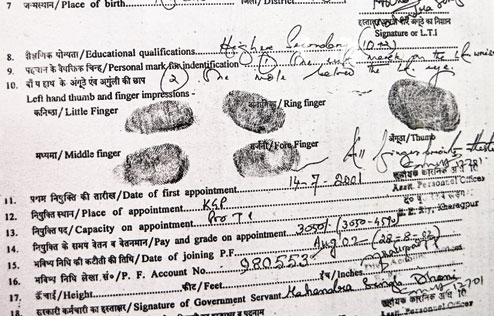 7 जन्मस्थान / Place of birth
Signature or L.T.I
8. शैक्षणिक योग्यता / Educational qualifications Higher Secondary (10+2)
9. पहचान के वैयक्तिक चिन्ह / Personal mark for indentification 1. One mark on the
10. बाँये हाथ के अंगूठे एंव अगुंली की छाप 2. One mole the eye
Left hand thumb and finger impressions -
कनिष्ठा / Little Finger अनामिका / Ring finger
मध्यमा / Middle finger तर्जनी / Fore Finger अंगूठा / Thumb
All finger prints
11. प्रथम नियुक्ति की तारीख / Date of first appointment 14-7-2001
Asstt. Personnel Officer
12. नियुक्ति स्थान / Place of appointment KGP
13. नियुक्ति पद / Capacity on appointment
14. नियुक्ति के समय वेतन व वेतनमान / Pay and grade on appointment 3050/- (3050-4590)
15. भविष्य निधि की कटौती की तिथि / Date of joining P.F. Aug 02
16. भविष्य निधि लेखा सं० / P. F. Account No. 980553
17. ऊँचाई / Height फीट / Feet इंच / Inches
18. सरकारी कर्मचारी का हस्ताक्षर / Signature of Government Servant Mahendra Singh Dhoni
Asstt. Personnel Officer